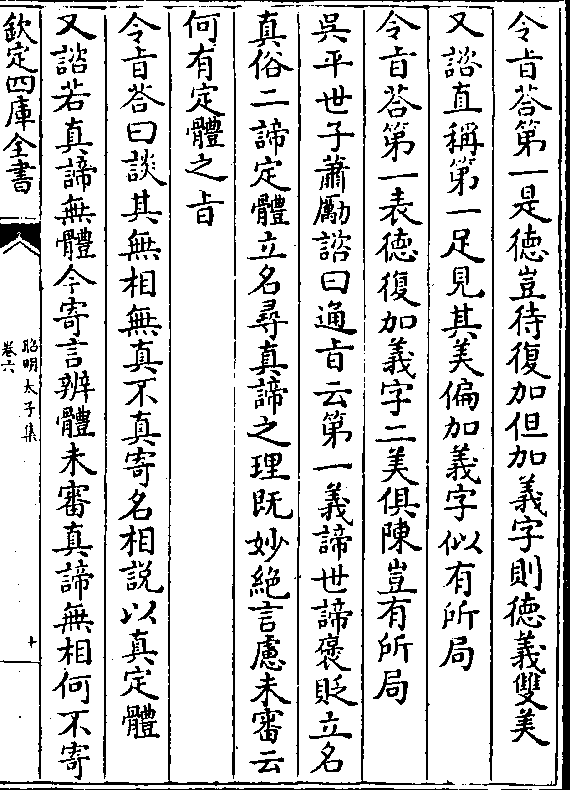 令㫖荅第一是徳豈待復加但加義字則徳義雙美
又諮直稱第一足見其美偏加義字似有所局
令㫖荅第一表徳復加義字二美俱陳豈有所局
吳平世子蕭勵諮曰通㫖云第一義諦世諦褒貶立名
真俗二諦定體立名尋真諦之理既妙絶言慮未審云
何有定體之㫖
令㫖荅曰談其無相無真不真寄名相説以真定體
又諮若真諦無體今寄言辨體未審真諦無相何不寄
欽定四庫全書
昭明太子集
卷六
十